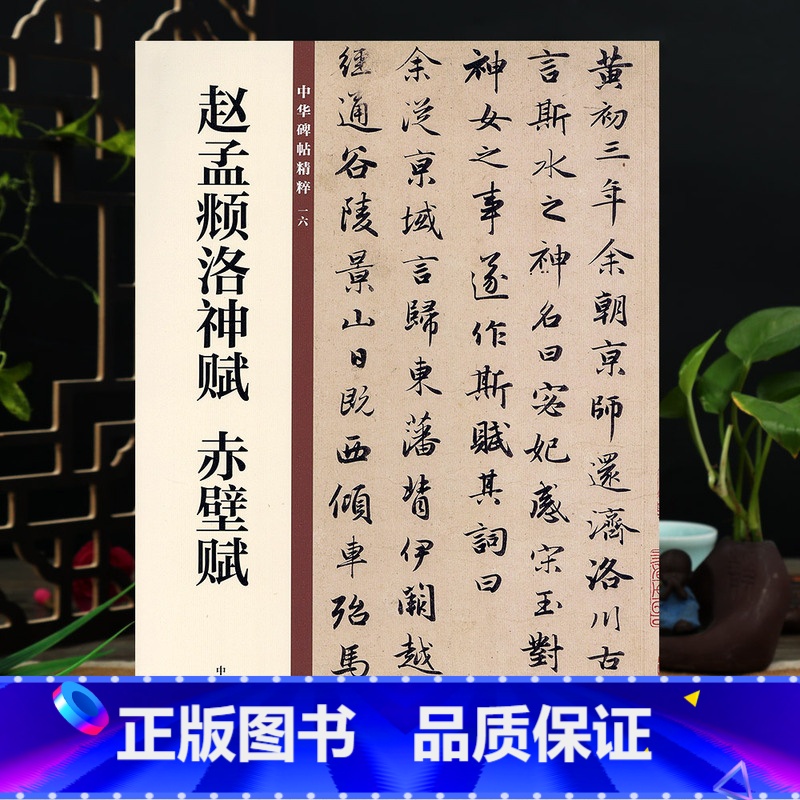 赵孟𫖯洛神赋 赤壁赋
中华碑帖精粹 一六
黄初三年余朝京師還濟洛川古
言斯水之神名曰宓妃感宋玉對
神女之事遂作斯賦其詞曰
余從京域言歸東藩背伊闕越
經通谷陵景山日既西傾車殆馬
中
正版图书 品质保证